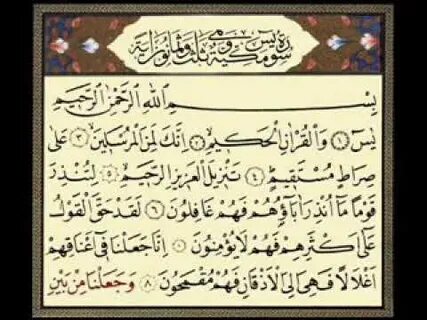 سورة يس مكية وهي ثلث وثمانون اية
بِسْمِ اللّٰهِ الرَّحْمٰنِ الرَّحِيمِ
يٰسٓ ﴿١﴾ وَالْقُرْاٰنِ الْحَكِيمِ ﴿٢﴾ اِنَّكَ لَمِنَ الْمُرْسَلِينَ ﴿٣﴾ عَلٰى
صِرَاطٍ مُسْتَقِيمٍ ﴿٤﴾ تَنْزِيلَ الْعَزِيزِ الرَّحِيمِ ﴿٥﴾ لِتُنْذِرَ
قَوْمًا مَا اُنْذِرَ اٰبَاؤُهُمْ فَهُمْ غَافِلُونَ ﴿٦﴾ لَقَدْ حَقَّ الْقَوْلُ
عَلٰى اَكْثَرِهِمْ فَهُمْ لَا يُؤْمِنُونَ ﴿٧﴾ اِنَّا جَعَلْنَا فِى اَعْنَاقِهِمْ
اَغْلَالًا فَهِىَ اِلَى الْاَذْقَانِ فَهُمْ مُقْمَحُونَ ﴿٨﴾ وَجَعَلْنَا مِنْ بَيْنِ